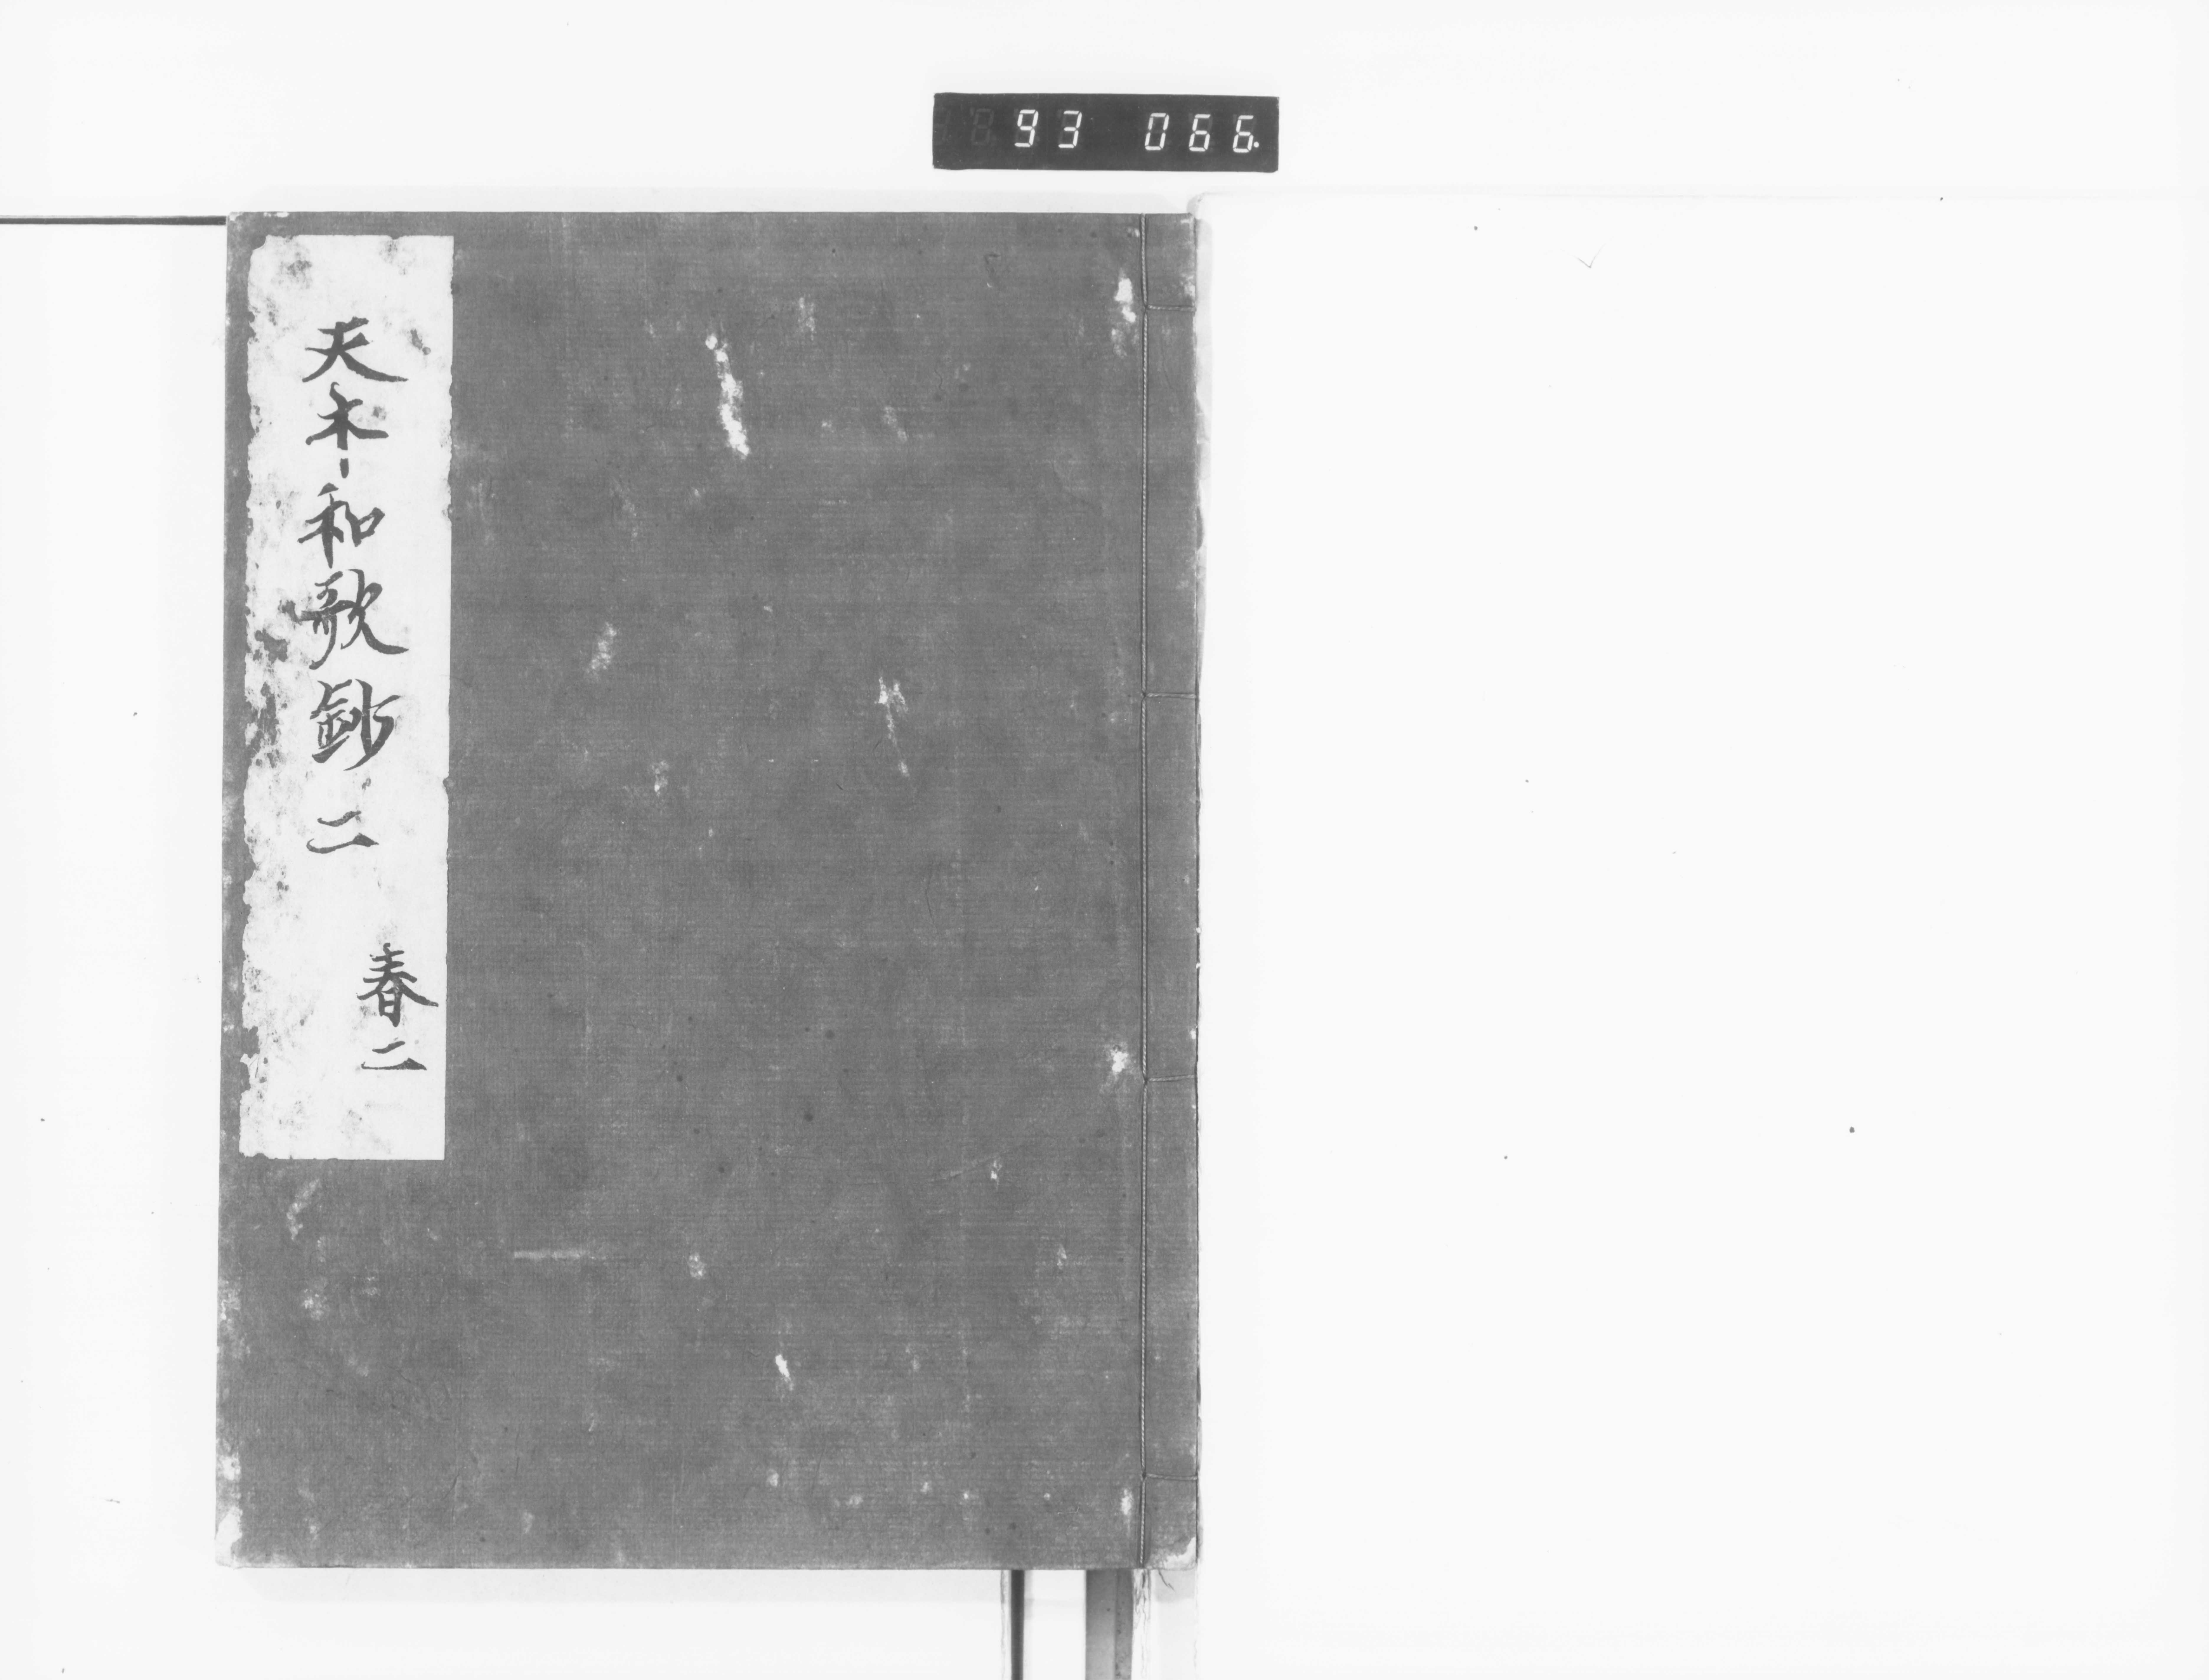 93 066.
夫木和歌鈔 二
春二